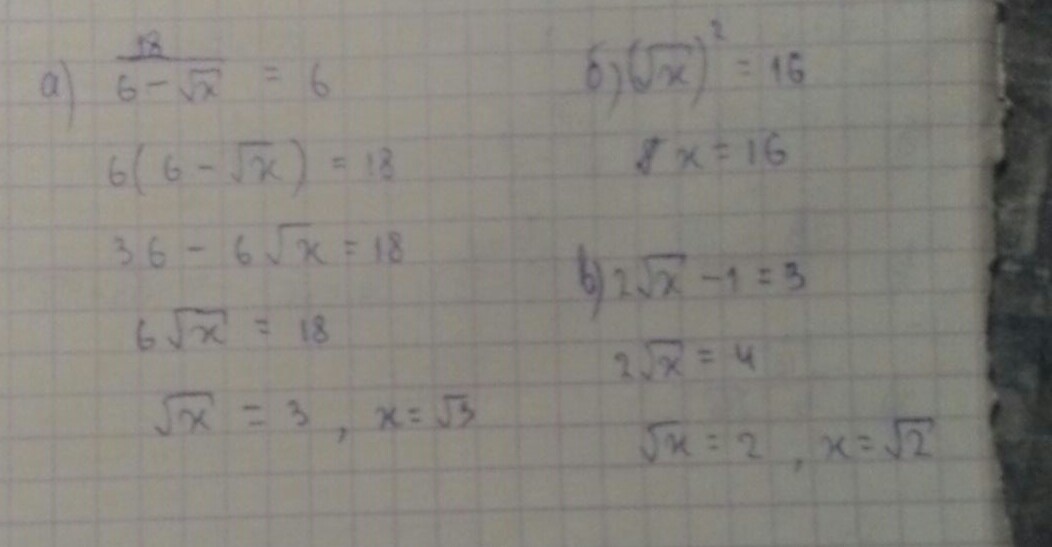 а) 18/(6 − √x) = 6
6(6 − √x) = 18
36 − 6√x = 18
6√x = 18
√x = 3, x = √3
б) (√x)² = 16
x = 16
в) 2√x − 1 = 3
2√x = 4
√x = 2, x = √2